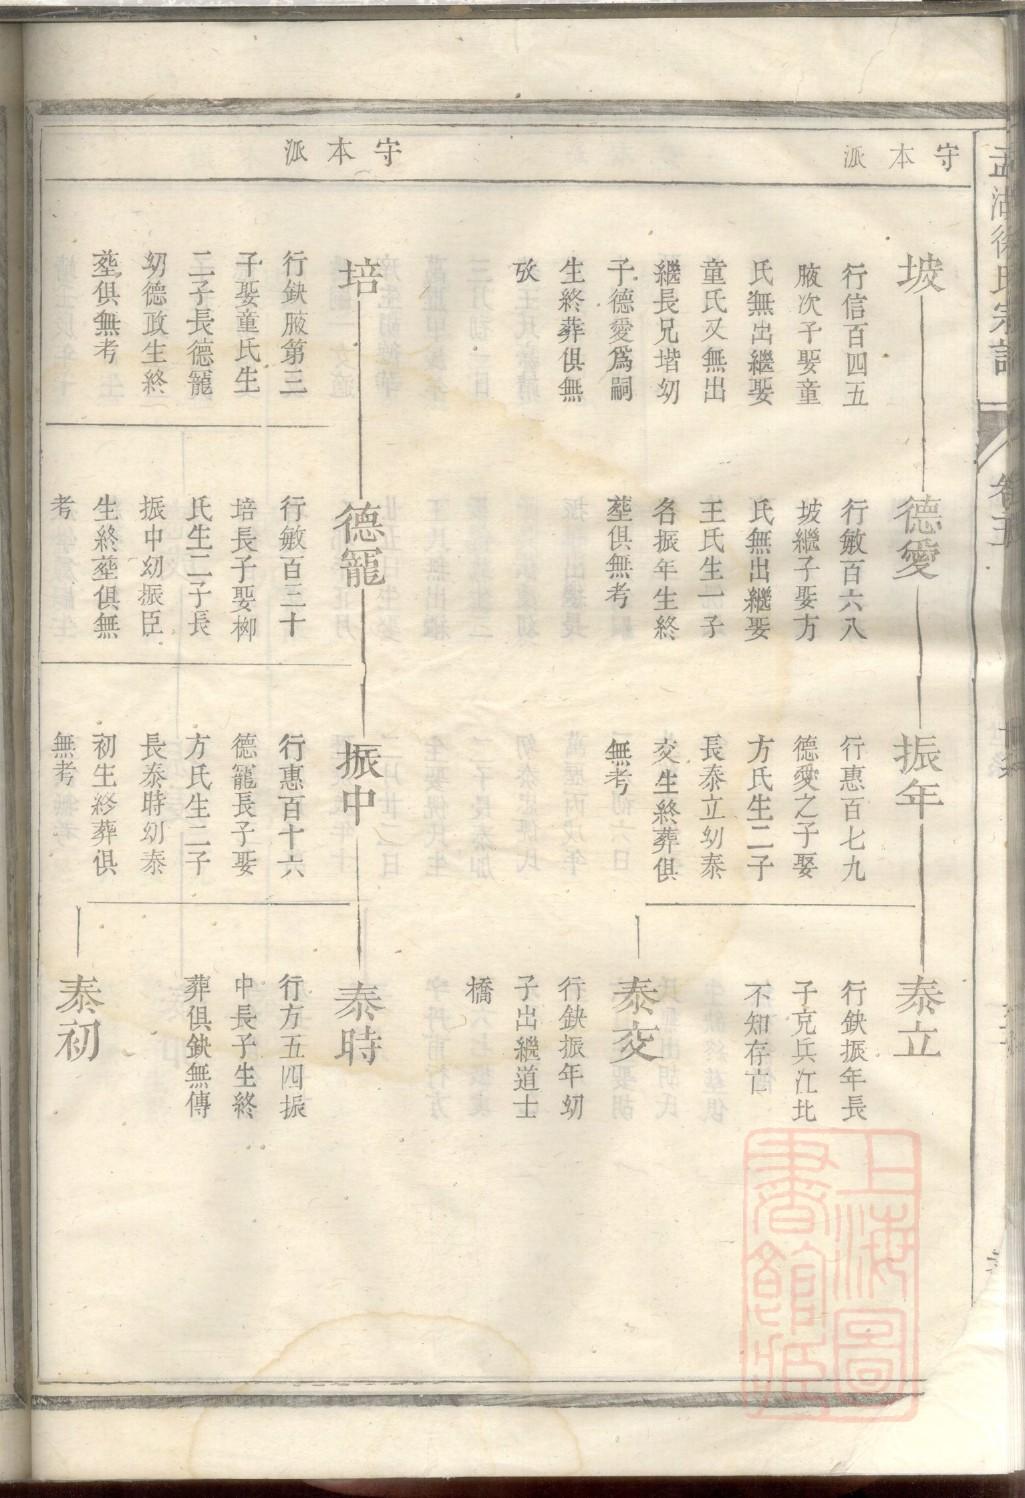 孟湖徐氏宗譜
卷五
守本派
坡
行信百四五
腋次子娶童
氏無出繼娶
童氏又無出
繼長兄堦幼
子德愛爲嗣
生終葬俱無
攷
德愛
行敏百六八
坡繼子娶方
氏無出繼娶
王氏生一子
名振年生終
塟俱無考
振年
行惠百七九
德愛之子娶
方氏生二子
長泰立幼泰
交生終葬俱
無考
泰立
行鈌振年長
子充兵江北
不知存亡
泰交
行鈌振年幼
子出繼道士
橋
守本派
培
行鈌腋第三
子娶童氏生
二子長德寵
幼德政生終
塟俱無考
德寵
行敏百三十
培長子娶柳
氏生二子長
振中幼振臣
生終塟俱無
考
振中
行惠百十六
德寵長子娶
方氏生二子
長泰時幼泰
初生終葬俱
無考
泰時
行方五四振
中長子生終
葬俱鈌無傳
泰初
上海圖
書館藏